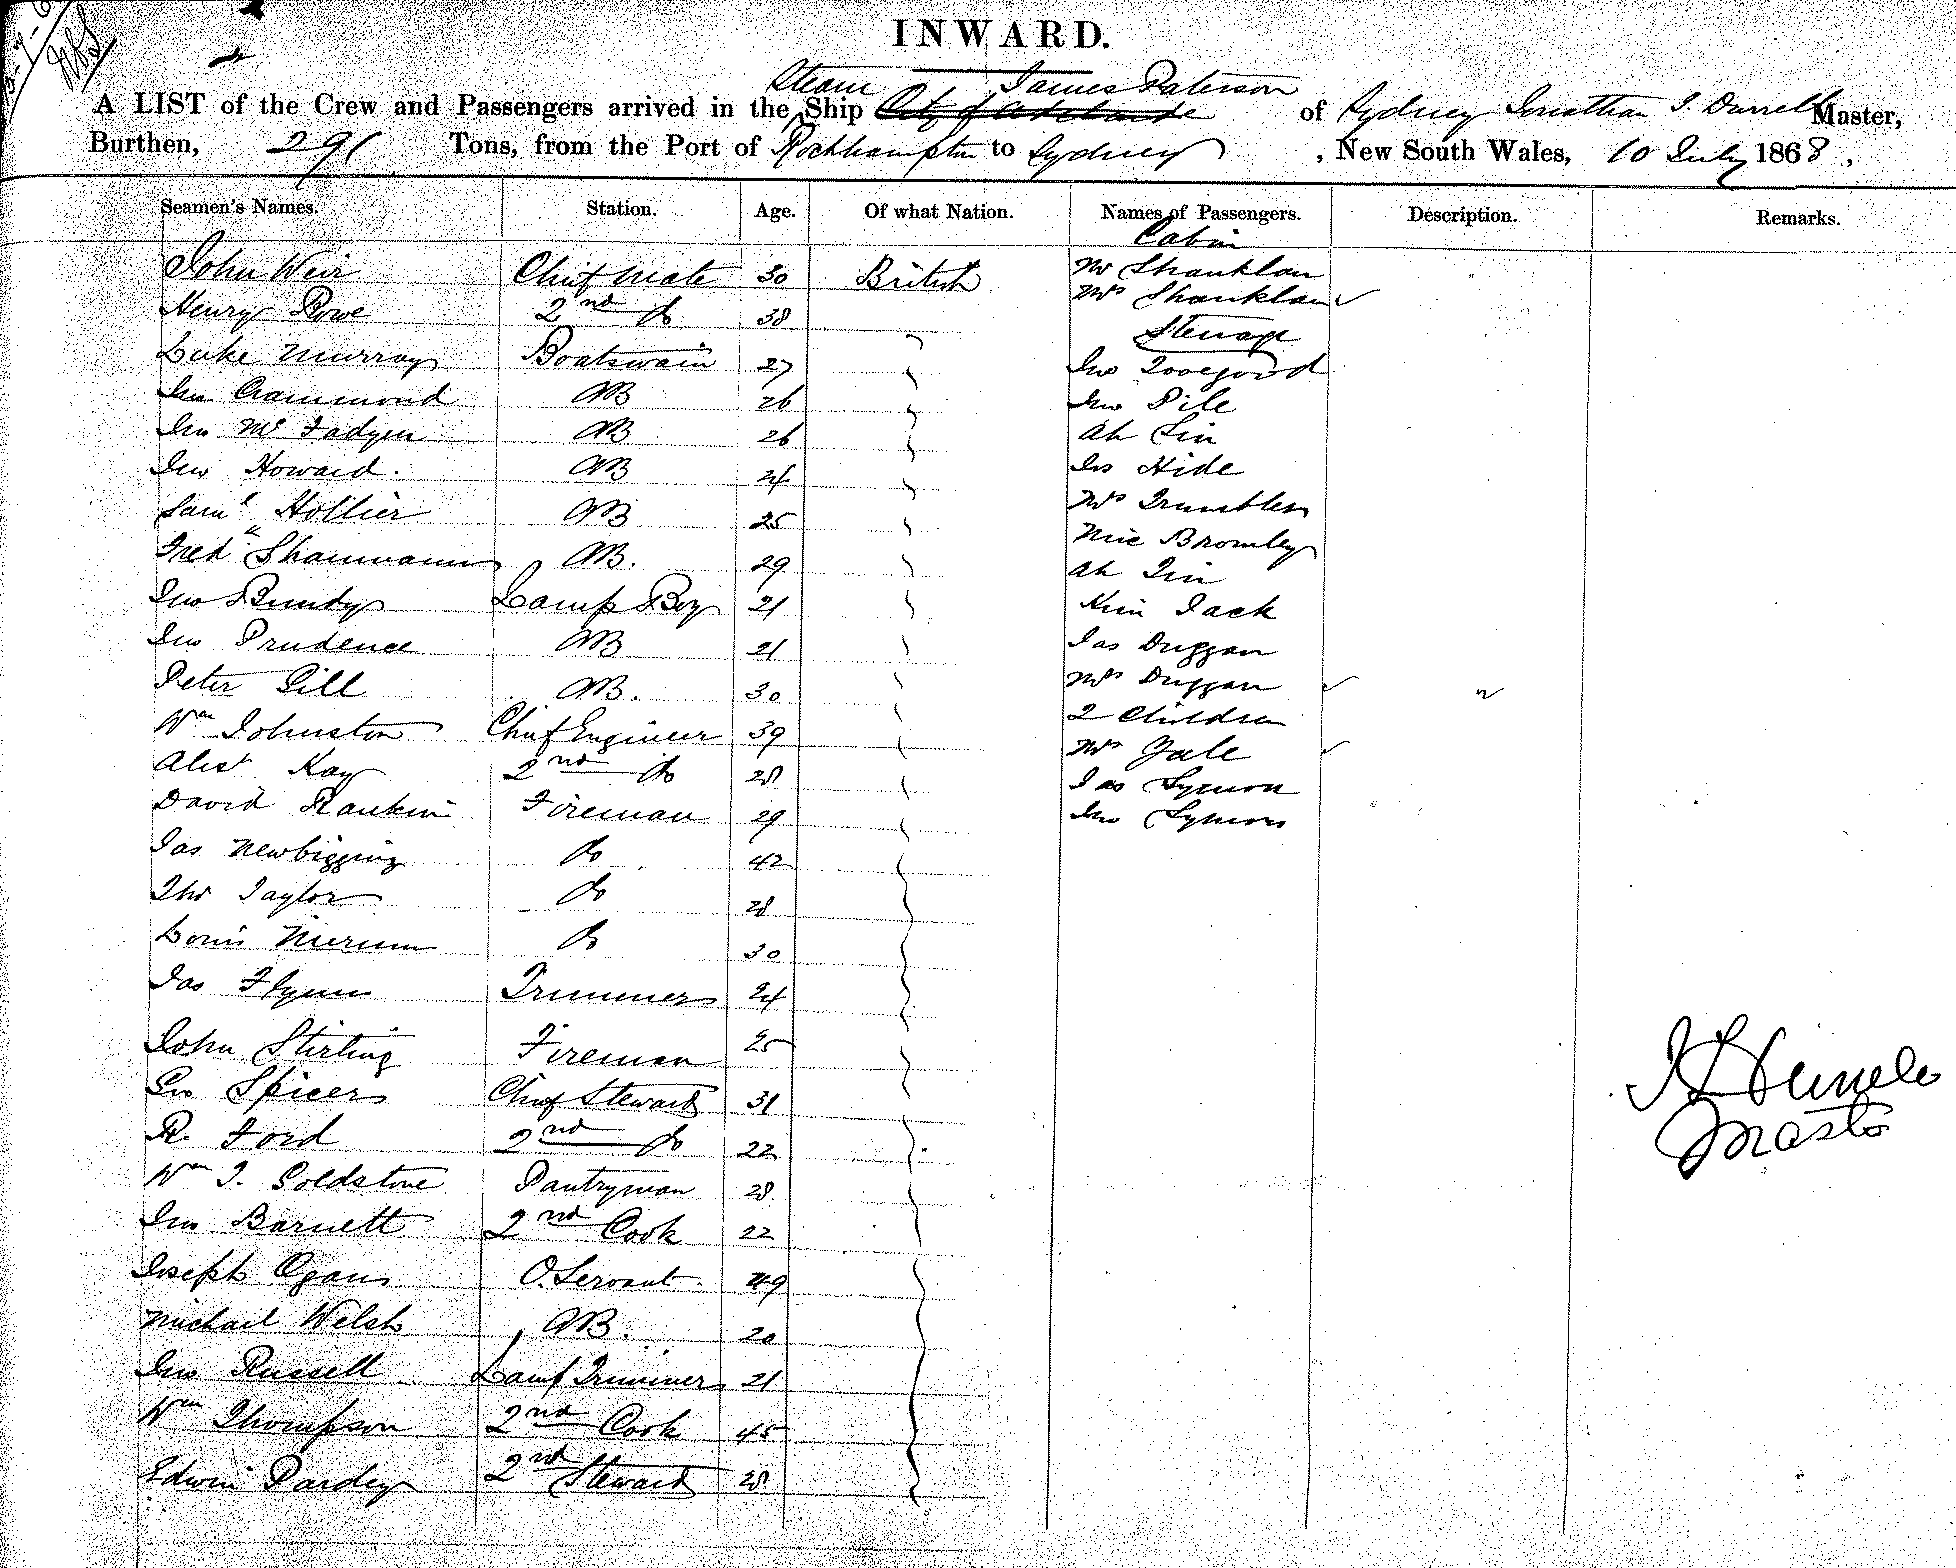 INWARD.
Steam James Paterson
A LIST of the Crew and Passengers arrived in the Ship City of Adelaide of Sydney Jonathan Master,
Burthen, 291 Tons, from the Port of Rockhampton to Sydney, New South Wales, 10 July 1868,
Seamen's Names. Station. Age. Of what Nation. Names of Passengers. Description. Remarks.
Cabin
John Weir Chief Mate 30 British Mr Shanklan
Mrs Shanklan
Henry Rowe 2nd do 38
Steerage
Luke Murray Boatswain 27 Jno Toogood
Jno Crammond AB 26 Jno Pile
Jno McFadyen AB 26 Ah Sin
Jno Howard AB 24 Js Hide
Saml Hollier AB 25 Mrs Trumbler
Fredk AB. 29 Bromley
Ah
Jno Bundy Lamp Boy 21 Jack
Jno Prudence AB 21 Jas Duggan
Peter Gill AB. 30 Mrs Duggan
Wm Johnston Chief Engineer 39 2 Children
Mrs Yale
Alexr Kay 2nd do 28 Jas Symon
David Rankin Fireman 29 Jno Symons
Jas Newbigging do 42
Thos Taylor do 28
Louis do 30
Jas Flynn Trimmer 24
John Stirling Fireman 25
Geo Spicer Chief Steward 31
R. Ford 2nd do 22
Wm J. Goldstone Pantryman 28
Jno Barnett 2nd Cook 22
Joseph Ogans O. Servant 49
Michael Welsh AB. 20
Jno Russell Lamp Trimmer 21
Wm Thompson 2nd Cook 45
Edwin Pardey 2nd Steward 28
Master